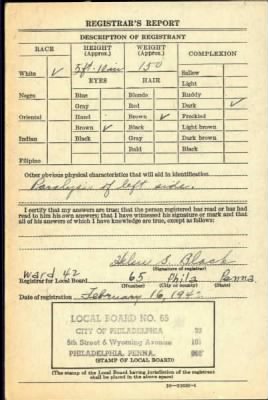 REGISTRAR'S REPORT
DESCRIPTION OF REGISTRANT
RACE HEIGHT (Approx.) WEIGHT (Approx.) COMPLEXION
White ✓ 5ft-10in 150 Sallow
EYES HAIR Light
Negro Blue Blonde Ruddy
Gray Red Dark ✓
Oriental Hazel Brown ✓ Freckled
Brown ✓ Black Light brown
Indian Black Gray Dark brown
Bald Black
Filipino
Other obvious physical characteristics that will aid in identification
Paralysis of left side.
I certify that my answers are true; that the person registered has read or has had
read to him his own answers; that I have witnessed his signature or mark and that
all of his answers of which I have knowledge are true, except as follows:
Helen S. Black
(Signature of registrar)
Ward 42
Registrar for Local Board 65 Phila Penna
(Number) (City or county) (State)
Date of registration February 16, 194
LOCAL BOARD NO. 65
CITY OF PHILADELPHIA
5th Street & Wyoming Avenue 101
PHILADELPHIA, PENNA.
(STAMP OF LOCAL BOARD)
(The stamp of the Local Board having jurisdiction of the registrant
shall be placed in the above space)